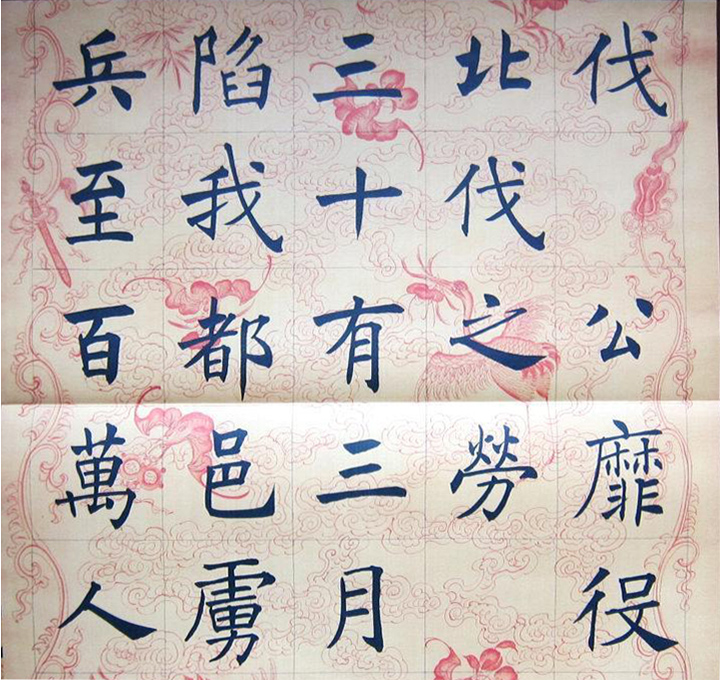 伐 公靡役
北伐之勞
三十有三月
陷我都邑虜
兵至百萬人